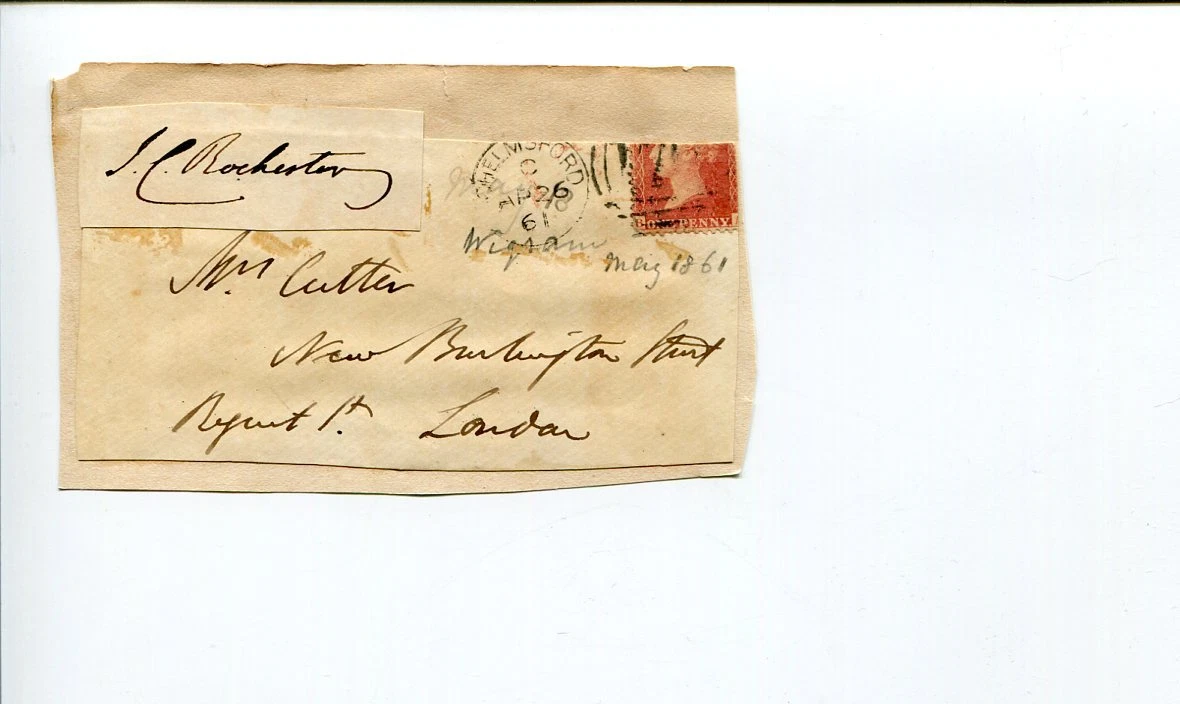 J. C. Rochester
CHELMSFORD
C
AP 26
61
Wigram
May 1861
ONE PENNY
Mrs Cutter
New Burlington Street
Regent St. London